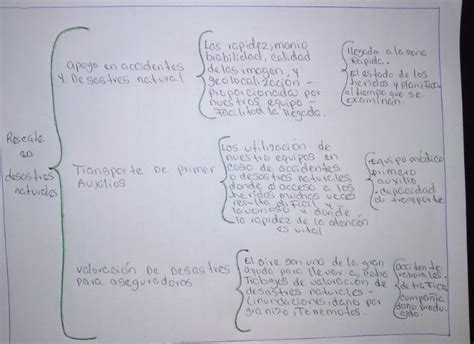 Rescate
en
desastres
naturales
apoyo en accidentes
y Desastres natural
Las rapidez, manio
brabilidad, calidad
de las imagen, y
geolocalización -
proporcionada por
nuestros equipo -
Facilitad la llegada.
llegada a la zona
Rapida.
El estado de los
heridos y planifica
al tiempo que se
examinan.
Transporte De primer
Auxilios
Las utilización de
nuestro equipos en
caso de accidentes
a desastres naturales,
donde el acceso a los
heridos muchas veces
resulta dificil y
lavorioso y donde
la rapidez de la atención
es vital
Equipo médico
primero
auxilio
capacidad
de transporte
valoración De Desastres
para aseguradoras
El aire son una de la gran
ayuda para llevar a cabo
Trabajos de valoración de
desastres naturales -
(inundaciones, daño por
granizo, Terremotos.
accidente
de trafico
compañia
daño produ
cido.